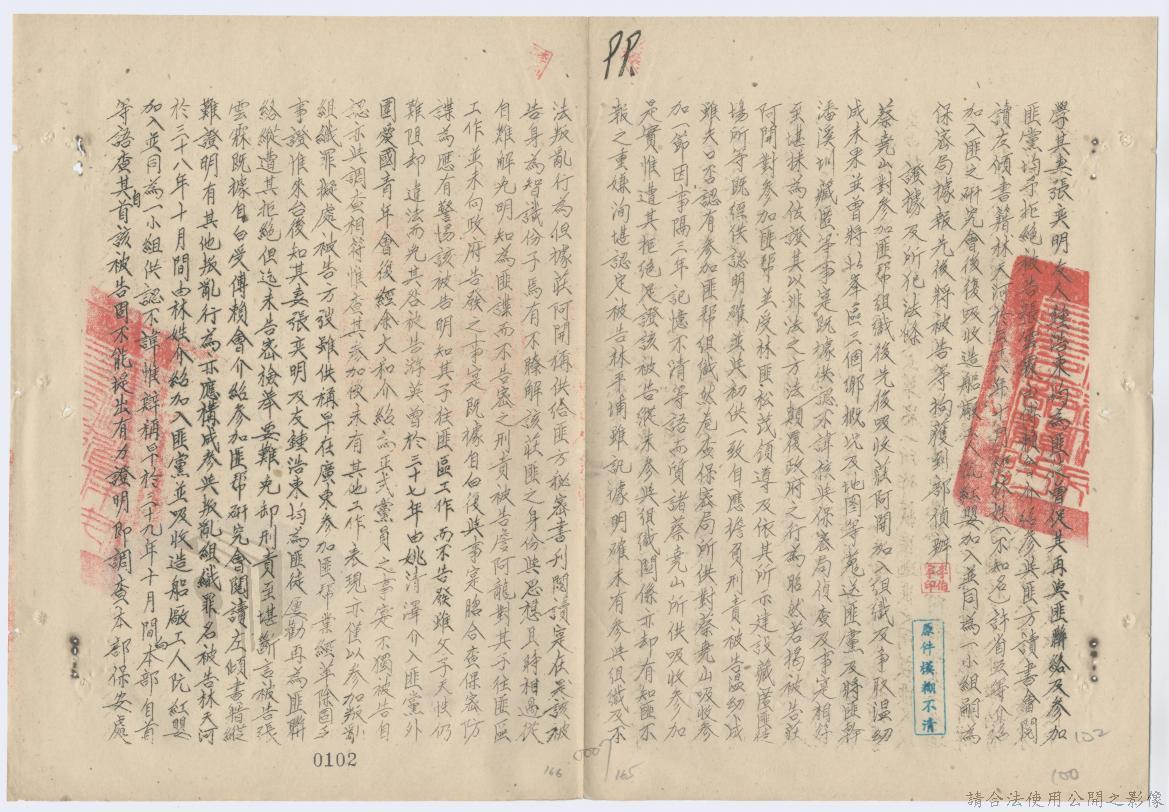 學其夫張奕明友人鍾浩東均為匪黨曾促其再與匪聯絡及參加
匪黨均予拒絕被告張雲霖傅賴會介紹參與匪方讀書會閱
讀左傾書籍林天河於三十八年十月間經林姓(不知名)許省五等介紹
加入匪之研究會後後吸收造船廠工人阮紅嬰加入並同為一小組嗣為
保密局據報先後將被告等拘獲到部偵辦
證據及所犯法條
蔡堯山對參加匪幫組織後先後吸收莊阿開加入組織及爭取溫幼
成未果並曾將
潘溪圳藏匿等事實既據供認不諱核與保密局偵查及事實相符
至堪採為佐證其以非法之方法顛覆政府之行為昭然若揭被告莊
阿開對參加匪幫並受林匪松茂領導及依其所示建設藏匿匪徒
場所等既經供認明確並與初供一致自應擔負刑責被告溫幼成
雖矢口否認有參加匪幫組織然卷查保密局所供對蔡堯山吸收參
加一節因事隔三年記憶不清等語而質諸蔡堯山所供吸收參加
是實惟遭其拒絕足證該被告縱未參與組織關係亦却有知匪不
報之重嫌洵堪認定被告林平埔雖訊據明確未有參與組織及不
法叛亂行為但據莊阿開稱供給匪方秘密書刊閱讀實在是該被
告身為智識份子焉有不瞭解該莊匪之身份與思想且時相過從
自難解免明知為匪諜而不告密之刑責被告詹阿龍對其子往匪區
工作並未向政府告發之事實既據自白後與事實昭合查保密防
諜為應有警惕該被告明知其子往匪區工作而不告發雖父子天性仍
難阻却違法而免其咎被告游英曾於三十七年由姚清澤介入匪黨外
圍愛國青年會後經余大和介紹為正式黨員之事實不獨被告自
認亦與調查相符惟查其參加後未有其他工作表現亦僅以參加叛亂
組織罪擬處被告方弢雖供稱早在廣東參加匪幫業經革除固予
事證惟來台後知其妻張奕明及友鍾浩東均為匪徒屢勸再為匪聯
絡縱遭其拒絕但迄未告密檢舉要難免却刑責至堪斷言被告張
雲霖既據自白受傅賴會介紹參加匪幫研究會閱讀左傾書籍縱
難證明有其他叛亂行為亦應構成參與叛亂組織罪名被告林天河
於三十八年十月間由林姓介紹加入匪黨並吸收造船廠工人阮紅嬰
加入並同為一小組供認不諱惟辯稱早於三十九年十月間為本部自首
等語查其自首該被告固不能提出有力證明即調查本部保安處
原件模糊不清
0102
0007
166
165
102
100
請合法使用公開之影像